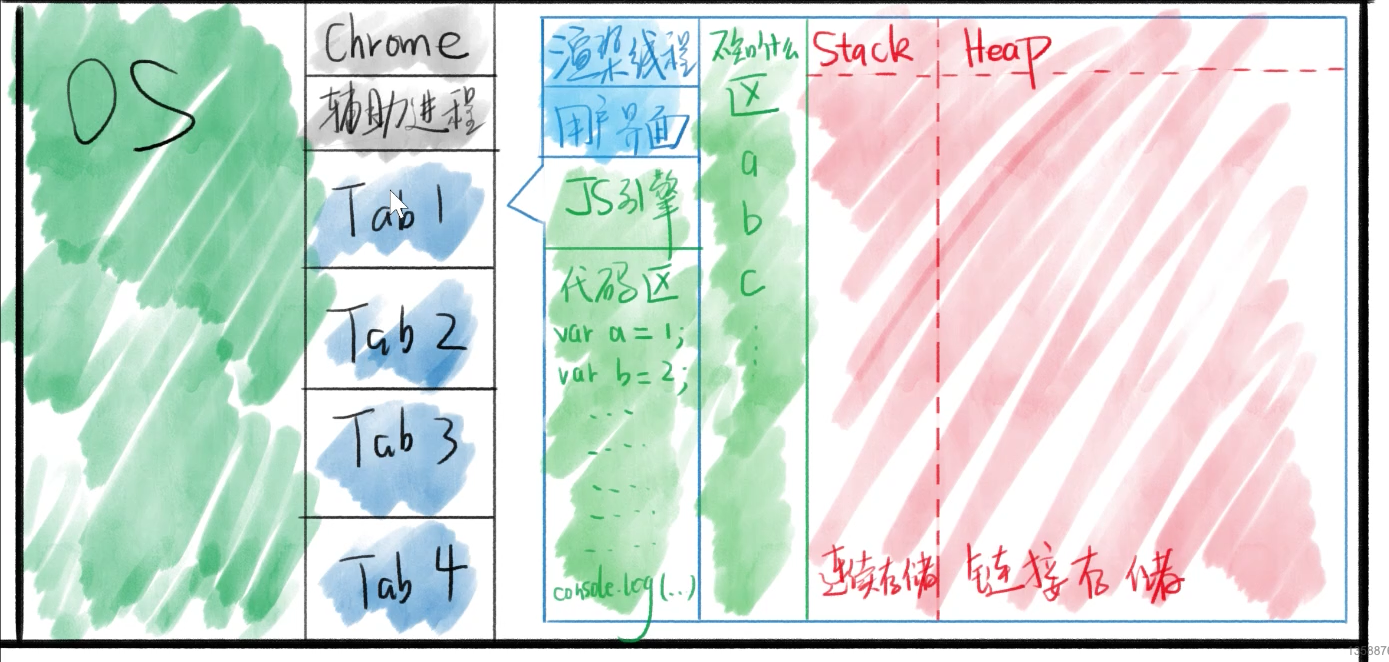 OS
Chrome
辅助进程
Tab 1
Tab 2
Tab 3
Tab 4
渲染线程
用户界面
JS引擎
代码区
var a = 1;
var b = 2;
console.log(..)
不知什么
区
a
b
c
Stack
Heap
连续存储
链接存储